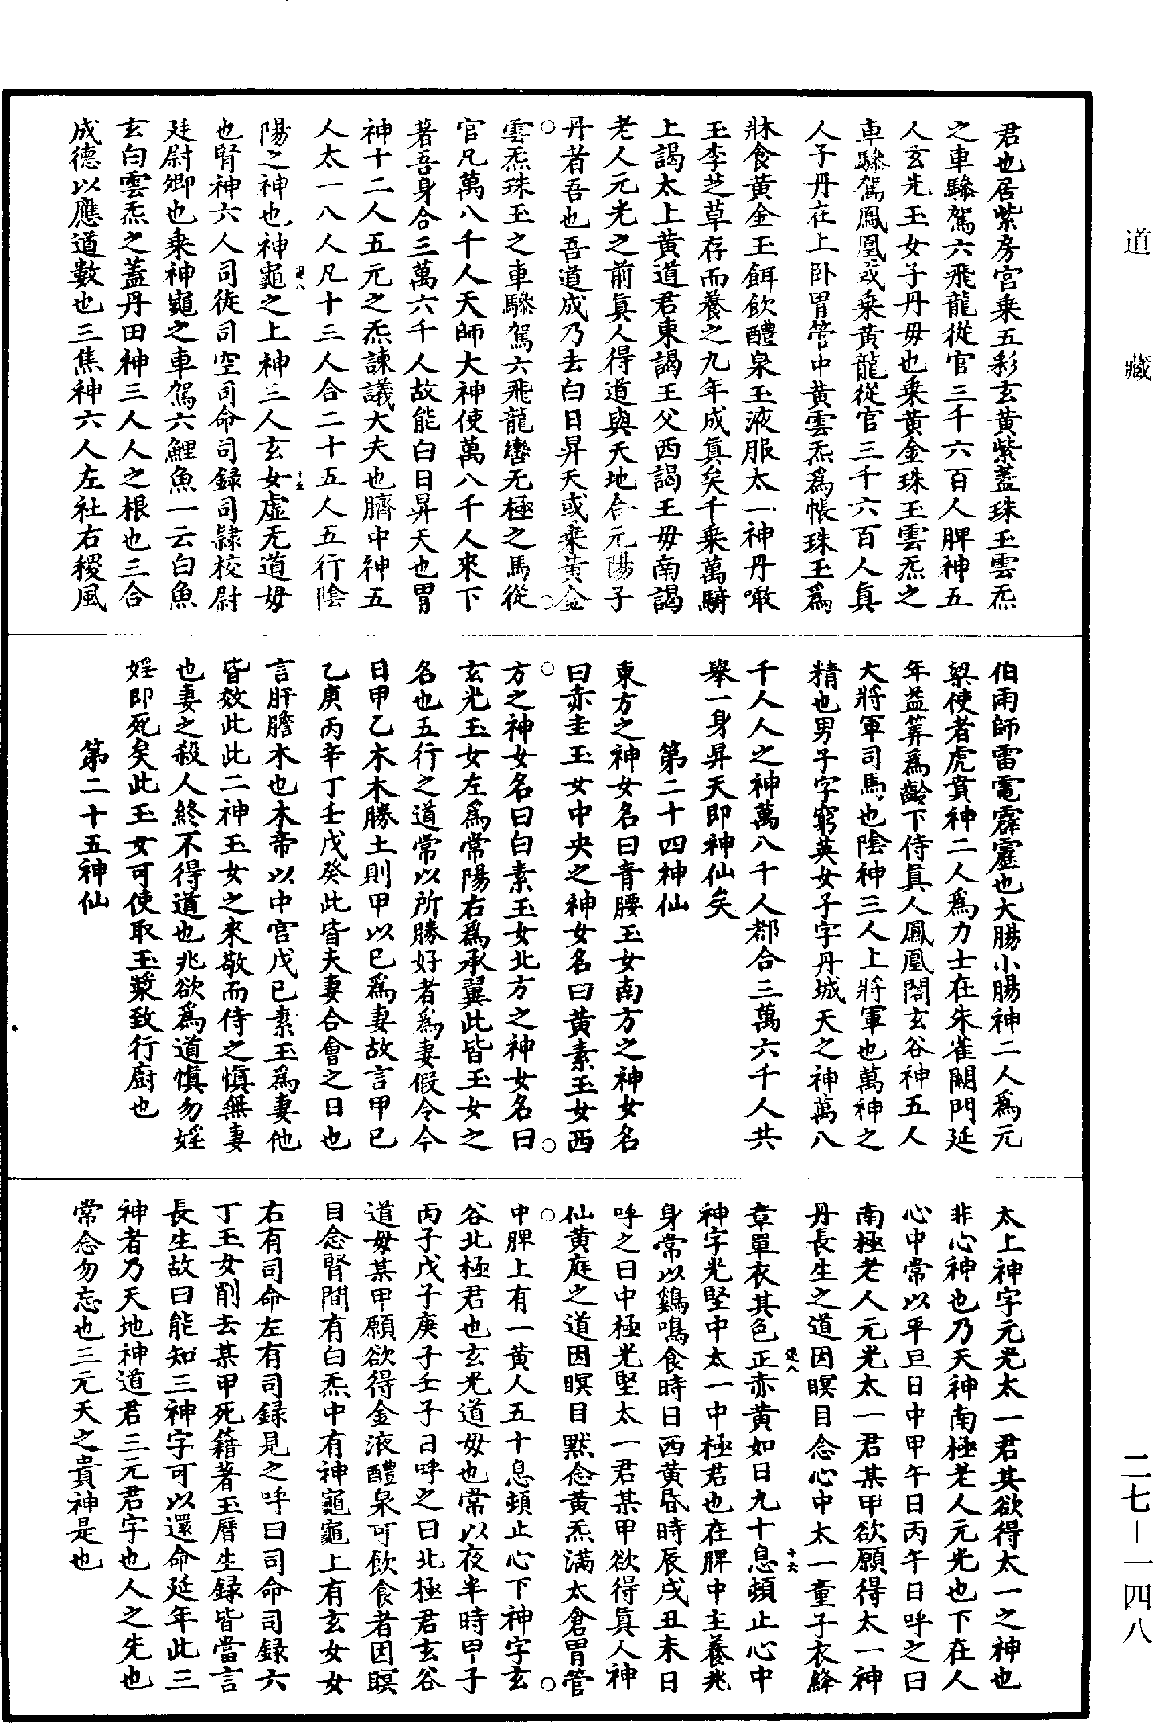 道藏
君也居紫房宮乘五彩玄黃紫蓋珠玉雲炁
之車驂駕六飛龍從官三千六百人脾神五
人玄光玉女子丹母也乘黃金珠玉雲炁之
車驂駕鳳凰或乘黃龍從官三千六百人真
人子丹在上臥胃管中黃雲炁爲帳珠玉爲
牀食黃金玉餌飲醴泉玉液服太一神丹噉
玉李芝草存而養之九年成真矣千乘萬騎
上謁太上黃道君東謁王父西謁王母南謁
老人元光之前真人得道與天地合元陽子
丹者吾也吾道成乃去白日昇天或乘黃金
雲炁珠玉之車驂駕六飛龍轡无極之馬從
官凡萬八千人天師大神使萬八千人來下
著吾身合三萬六千人故能白日昇天也胃
神十二人五元之炁諫議大夫也臍中神五
人太一八人凡十三人合二十五人五行陰
陽之神也神龜之上神三人玄女虛无道母
也腎神六人司徒司空司命司錄司隸校尉
廷尉卿也乘神龜之車駕六鯉魚一云白魚
玄白雲炁之蓋丹田神三人人之根也三合
成德以應道數也三焦神六人左社右稷風
伯雨師雷電霹靂也大腸小腸神二人爲元
梁使者虎賁神二人爲力士在朱雀闕門延
年益筭爲齡下侍真人鳳凰閣玄谷神五人
大將軍司馬也陰神三人上將軍也萬神之
精也男子字窮英女子字丹城天之神萬八
千人人之神萬八千人都合三萬六千人共
舉一身昇天即神仙矣
第二十四神仙
東方之神女名曰青腰玉女南方之神女名
曰赤圭玉女中央之神女名曰黃素玉女西
方之神女名曰白素玉女北方之神女名曰
玄光玉女左爲常陽右爲承翼此皆玉女之
名也五行之道常以所勝好者爲妻假令今
日甲乙木木勝土則甲以己爲妻故言甲己
乙庚丙辛丁壬戊癸此皆夫妻合會之日也
言肝膽木也木帝以中宮戊己素玉爲妻他
皆效此此二神玉女之來敬而侍之慎無妻
也妻之殺人終不得道也兆欲爲道慎勿婬
婬即死矣此玉女可使取玉漿致行廚也
第二十五神仙
太上神字元光太一君其欲得太一之神也
非心神也乃天神南極老人元光也下在人
心中常以平旦日中甲午日丙午日呼之曰
南極老人元光太一君某甲欲願得太一神
丹長生之道因瞑目念心中太一童子衣絳
章單衣其色正赤黃如日九十息頓止心中
神字光堅中太一中極君也在脾中主養兆
身常以鷄鳴食時日西黃昏時辰戌丑未日
呼之曰中極光堅太一君某甲欲得真人神
仙黃庭之道因瞑目默念黃炁滿太倉胃管
中脾上有一黃人五十息頓止心下神字玄
谷北極君也玄光道母也常以夜半時甲子
丙子戊子庚子壬子日呼之曰北極君玄谷
道母某甲願欲得金液醴泉可飲食者因瞑
目念腎間有白炁中有神龜龜上有玄女女
右有司命左有司錄見之呼曰司命司錄六
丁玉女削去某甲死籍著玉曆生錄皆當言
長生故曰能知三神字可以還命延年此三
神者乃天地神道君三元君字也人之先也
常念勿忘也三元天之貴神是也
二七—一四八